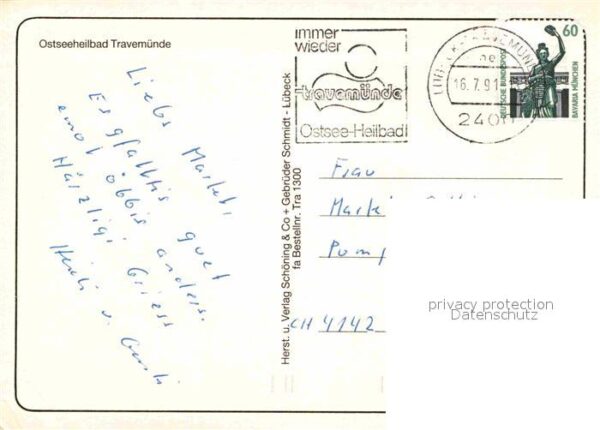 Ostseeheilbad Travemünde
immer
wieder
travemünde
Ostsee-Heilbad
LÜBECK-TRAVEMÜNDE
16.7.91
2400
60
DEUTSCHE BUNDESPOST
BAVARIA MÜNCHEN
Liebs
Es gfallt is guet
emol öbbis anders.
Härzligi Griess
Heidi u.
Herst. u. Verlag Schöning & Co + Gebrüder Schmidt - Lübeck
fa Bestellnr. Tra 1300
Frau
CH 4142
privacy protection
Datenschutz